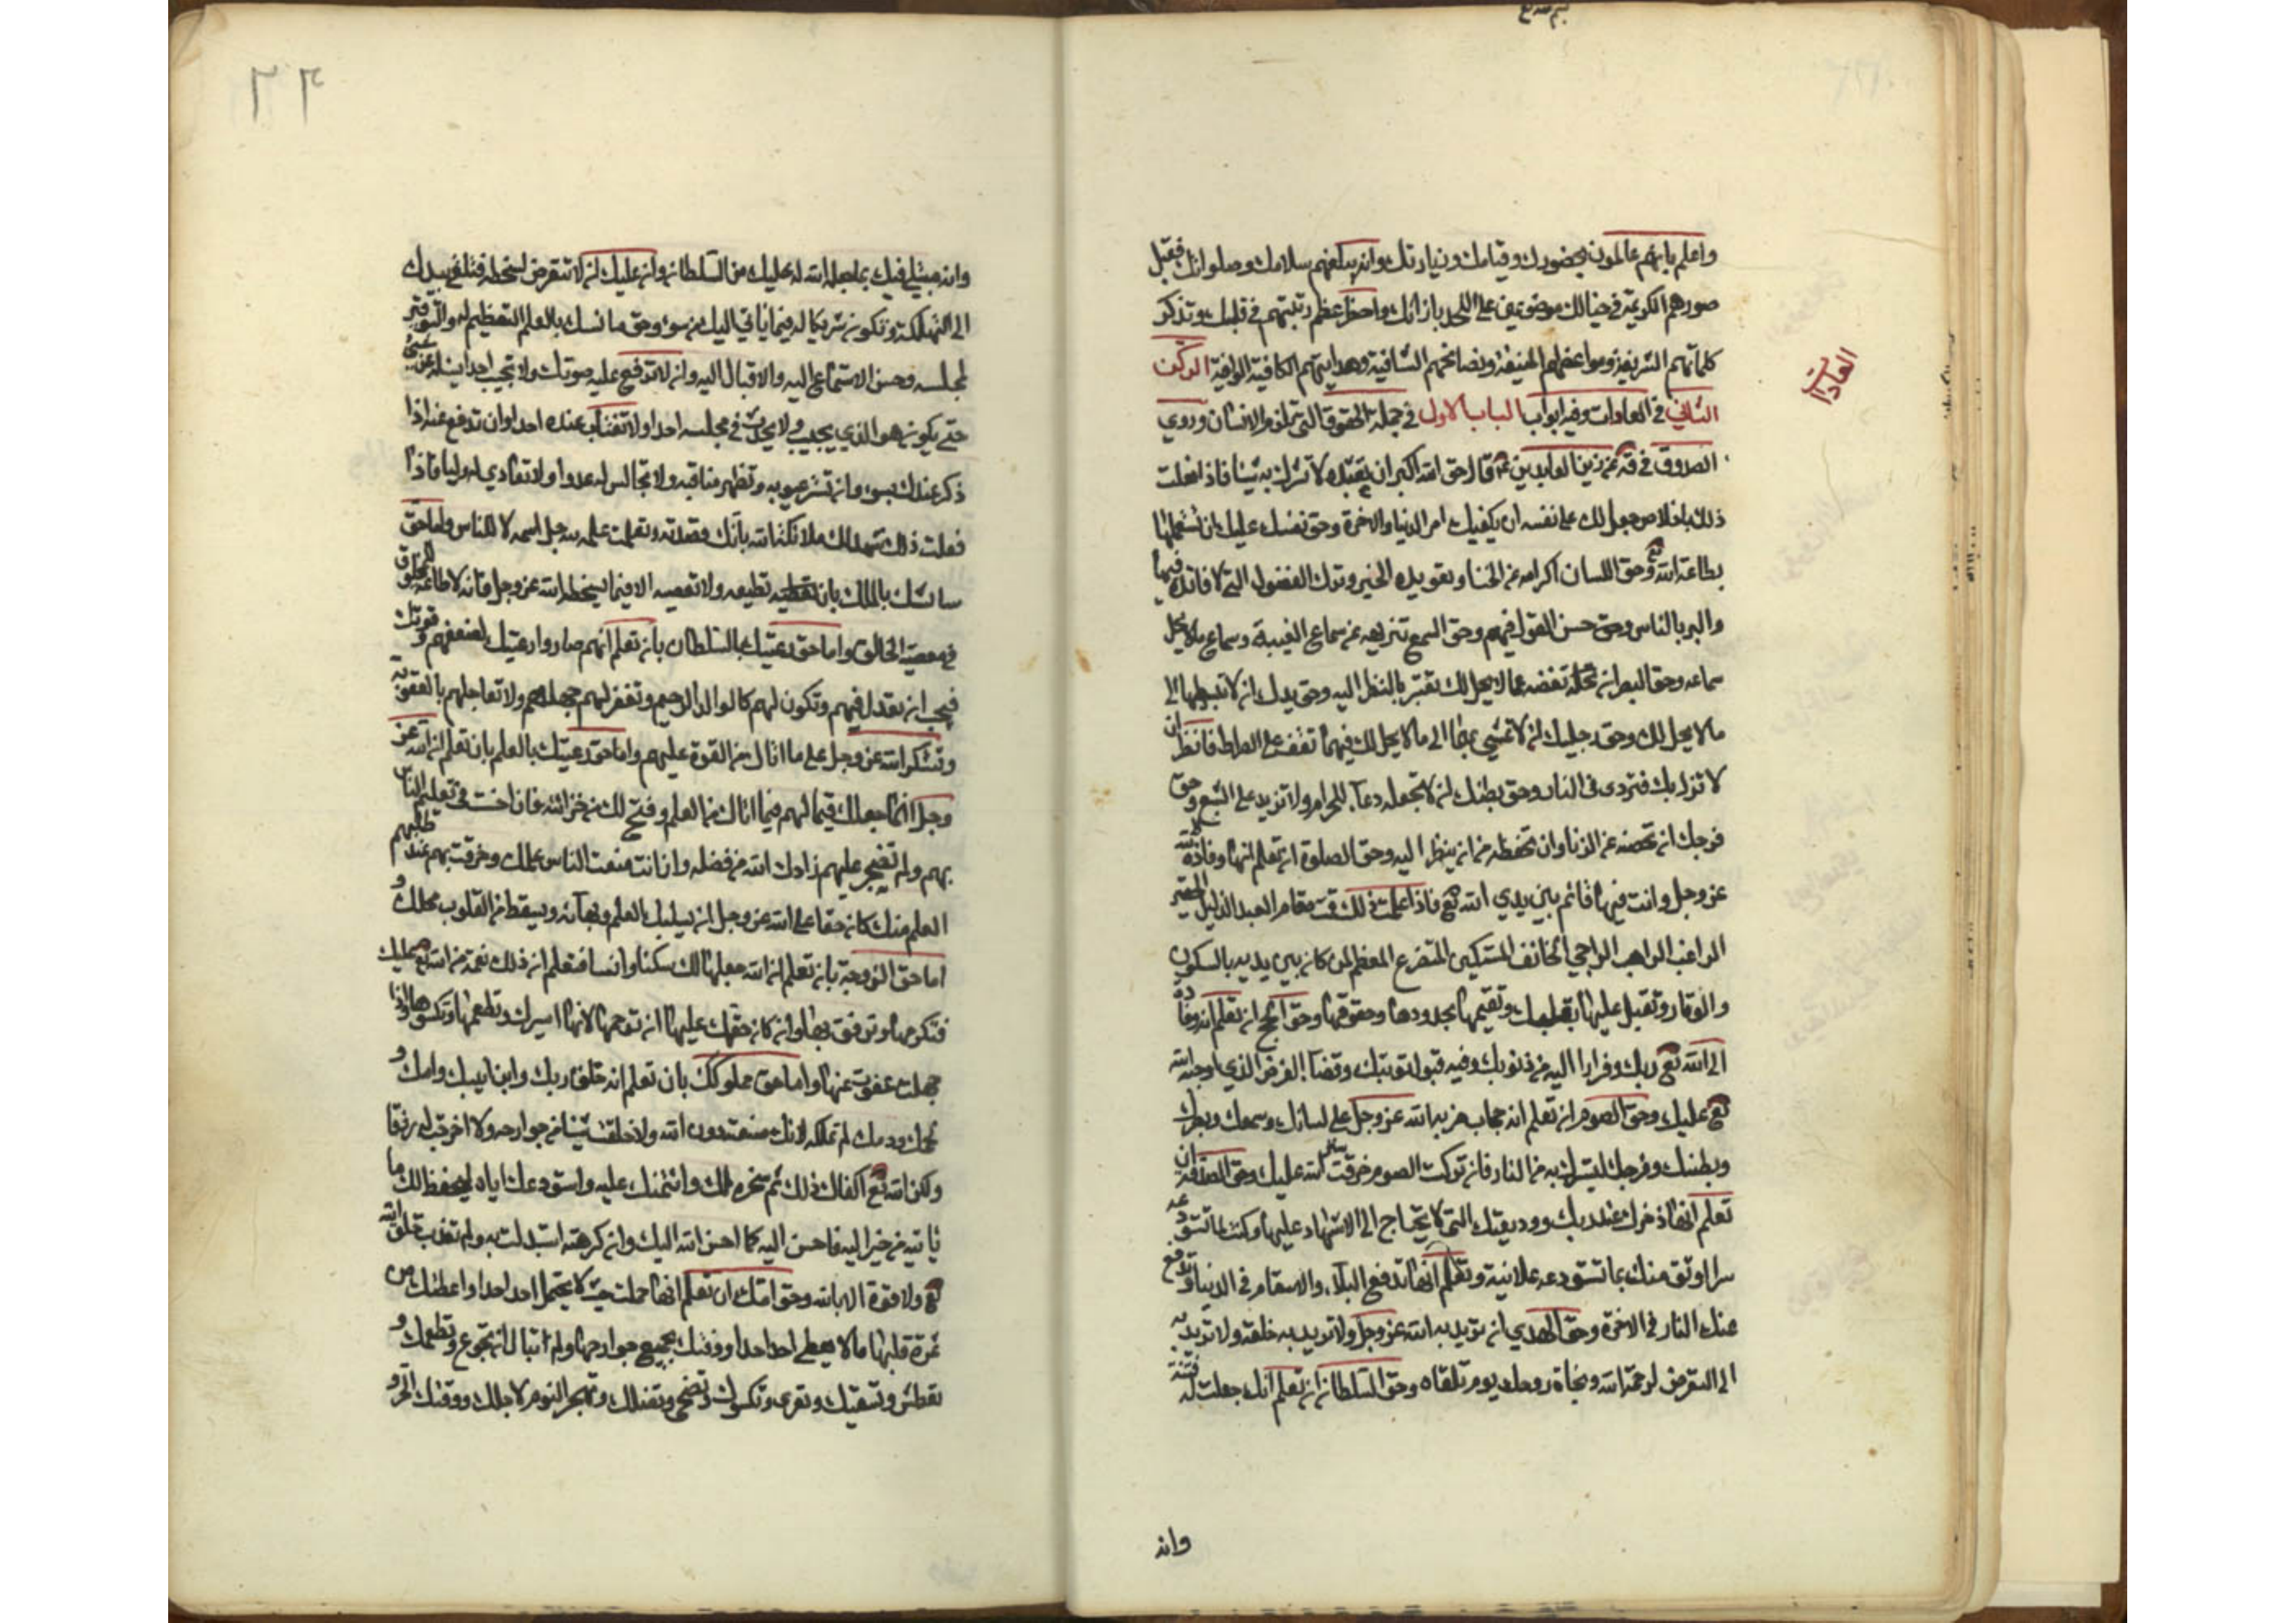 واعلم بانهم عالمون بحضورك وقيامك وزيارتك وانه يبلغهم سلامك وصلواتك فقبل
صورهم الكريمة في خيالك موضوعين على اللحد بازائك واحضر عظم رتبتهم في قلبك وتذكر
كلماتهم الشريفة ومواعظهم المنيفة ونصائحهم الشافية وهدايتهم الكافية الوافية الركن
العادات
الثاني في العادات وفيه ابواب الباب الاول في جملة الحقوق التي تلزم الانسان وروي
الصدوق في عن زين العابدين ع قال حق الله الاكبر ان تعبده لا تشرك به شيئا فاذا فعلت
ذلك باخلاص جعل لك على نفسه ان يكفيك امر الدنيا والاخرة وحق نفسك عليك ان تستعملها
بطاعة الله تع وحق اللسان اكرامه عن الخنا وتعويده الخير وترك الفضول التي لا فائدة فيها
والبر بالناس وحق حسن القول فيهم وحق السمع تنزيهه عن سماع الغيبة وسماع ما لا يحل
سماعه وحق البصر ان تغضه عما لا يحل لك تعتبر بالنظر اليه وحق يدك ان لا تبسطها الى
ما لا يحل لك وحق رجليك ان لا تمشي بهما الى ما لا يحل لك فبهما تقف على الصراط فانظر ان
لا تزل بك فتردى في النار وحق بطنك ان لا تجعله دعاء للحرام ولا تزيد على الشبع وحق
فرجك ان تحصنه عن الزنا وان تحفظه من ان ينظر اليه وحق الصلوة ان تعلم انها وفادة الى الله
عز وجل وانت فيها قائم بين يدي الله تع فاذا علمت ذلك قمت مقام العبد الذليل الحقير
الراغب الراهب الراجي الخائف المستكين المتضرع المعظم لمن كان بين يديه بالسكون
والوقار وتقبل عليها بقلبك وتقيمها بحدودها وحقوقها وحق الحج ان تعلم انه وفادة
الى الله تع ربك وفرارا اليه من ذنوبك وفيه قبول توبتك وقضاء الفرض الذي اوجبه الله
تع عليك وحق الصوم ان تعلم انه حجاب ضربه الله عز وجل على لسانك وسمعك وبصرك
وبطنك وفرجك ليسترك به من النار فان تركت الصوم خرقت ستر الله عليك وحق الصدقة ان
تعلم انها ذخرك عند ربك ووديعتك التي لا تحتاج الى الاشهاد عليها وكنت لما تستودعه
سرا اوثق منك بما تستودعه علانية وتعلم انها تدفع البلاء والاسقام في الدنيا وتدفع
عنك النار في الاخرة وحق الهدي ان تريد به الله عز وجل ولا تريد به خلقه ولا تريد به
الى التعرض لرحمة الله ونجاة روحك يوم تلقاه وحق السلطان ان تعلم انك جعلت له فتنة
وانه
وانه مبتلي فيك بما جعله الله له عليك من السلطان وان عليك ان لا تتعرض لسخطه فتلقي بيدك
الى التهلكة وتكون شريكا له فيما ياتي اليك من سوء وحق سائسك بالعلم التعظيم له والتوقير
لمجلسه وحسن الاستماع اليه والاقبال اليه وان لا ترفع عليه صوتك ولا تجيب احدا يسئله عن شيئ
حتى يكون هو الذي يجيب ولا يحدث في مجلسه احدا ولا تغتاب عنده احدا وان تدفع عنه اذا
ذكر عندك بسوء وان تستر عيوبه وتظهر مناقبه ولا تجالس له عدوا ولا تعادي له وليا فاذا
فعلت ذلك شهد لك ملائكة الله بانك قصدته وتعلمت علمه لله جل اسمه لا للناس واما حق
سائسك بالملك بان تطيعه ولا تعصيه الا فيما يسخط الله عز وجل فانه لا طاعة لمخلوق
في معصية الخالق واما حق رعيتك بالسلطان بان تعلم انهم صاروا رعيتك لضعفهم وقوتك
فيجب ان تعدل فيهم وتكون لهم كالوالد الرحيم وتغفر لهم جهلهم ولا تعاجلهم بالعقوبة
وتشكر الله عز وجل على ما اتاك من القوة عليهم واما حق رعيتك بالعلم بان تعلم ان الله عز
وجل انما جعلك قيما لهم فيما اتاك من العلم وفتح لك من خزائنه فان احسنت في تعليم الناس
بهم ولم تضجر عليهم زادك الله من فضله وان انت منعت الناس علمك وخرقت بهم عند طلبهم
العلم منك كان حقا على الله عز وجل ان يسلبك العلم وبهاءه ويسقط من القلوب محلك و
اما حق الزوجة بان تعلم ان الله جعلها لك سكنا وانسا فتعلم ان ذلك نعمة من الله تع عليك
فتكرمها وترفق بها وان كان حقك عليها ان ترحمها لانها اسيرك وتطعمها وتكسوها واذا
جهلت عفوت عنها واما حق مملوكك بان تعلم انه خلق ربك وابن ابيك وامك و
لحمك ودمك لم تملكه لانك صنعته دون الله ولا خلقت شيئا من جوارحه ولا اخرجت له رزقا
ولكن الله تع كفاك ذلك ثم سخره لك وائتمنك عليه واستودعك اياه ليحفظ لك ما
ياتيه من خير اليه فاحسن اليه كما احسن الله اليك وان كرهته استبدلت به ولم تعذب خلق الله
تع ولا قوة الا بالله وحق امك ان تعلم انها حملت حيث لا يحتمل احد احدا واعطتك من
ثمرة قلبها ما لا يعطي احد احدا ووقتك بجميع جوارحها ولم تبال ان تجوع وتطعمك و
تعطش وتسقيك وتعرى وتكسوك وتضحى وتظلك وتهجر النوم لاجلك ووقتك الحر و